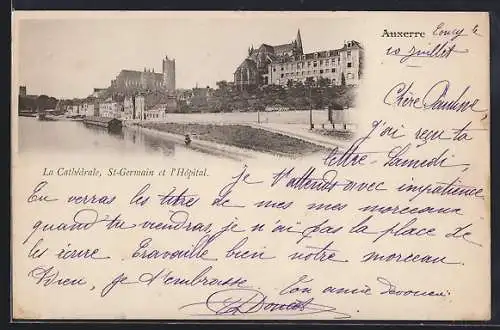 Auxerre
Toucy le
10 juillet
Chère Pauline,
J'ai reçu ta
lettre Samedi,
La Cathédrale, St-Germain et l'Hôpital.
Je t'attends avec impatience
Tu verras les titres de mes morceaux
quand tu viendras, je n'ai pas la place de
les écrire. Travaille bien notre morceau.
Adieu, je t'embrasse. Ton amie dévouée